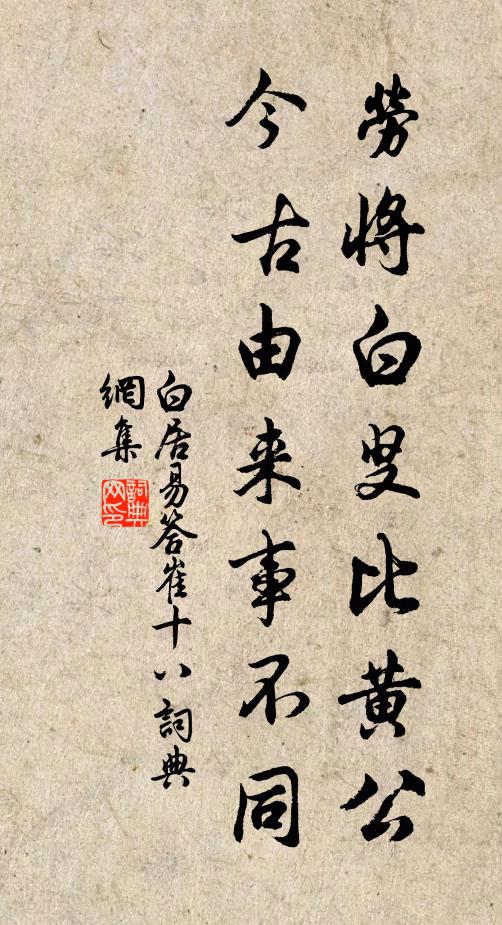 勞將白叟比黄公
今古由来事不同
白居易答崔十八詞典
網集
詞典
网印